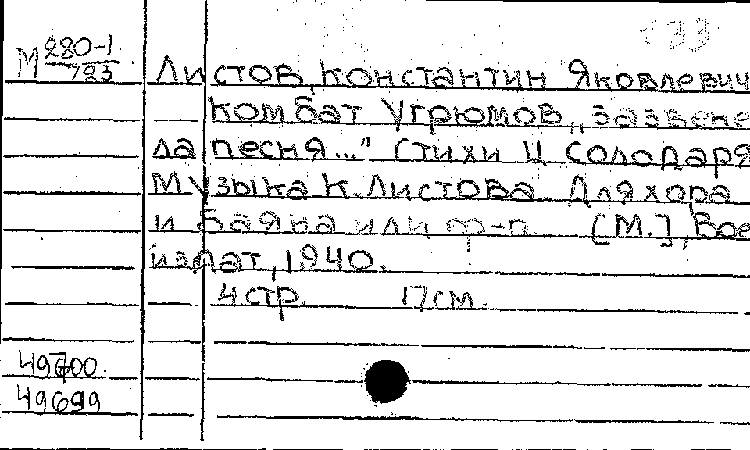 М 280-1
723
Листов, Константин Яковлевич
Комбат Угрюмов „Зазвене
ла песня..." Стихи Ц Солодаря
Музыка К. Листова Для хора
и баяна или ф-п. [М.], Вое
издат, 1940.
4 стр. 17 см.
49700.
49699